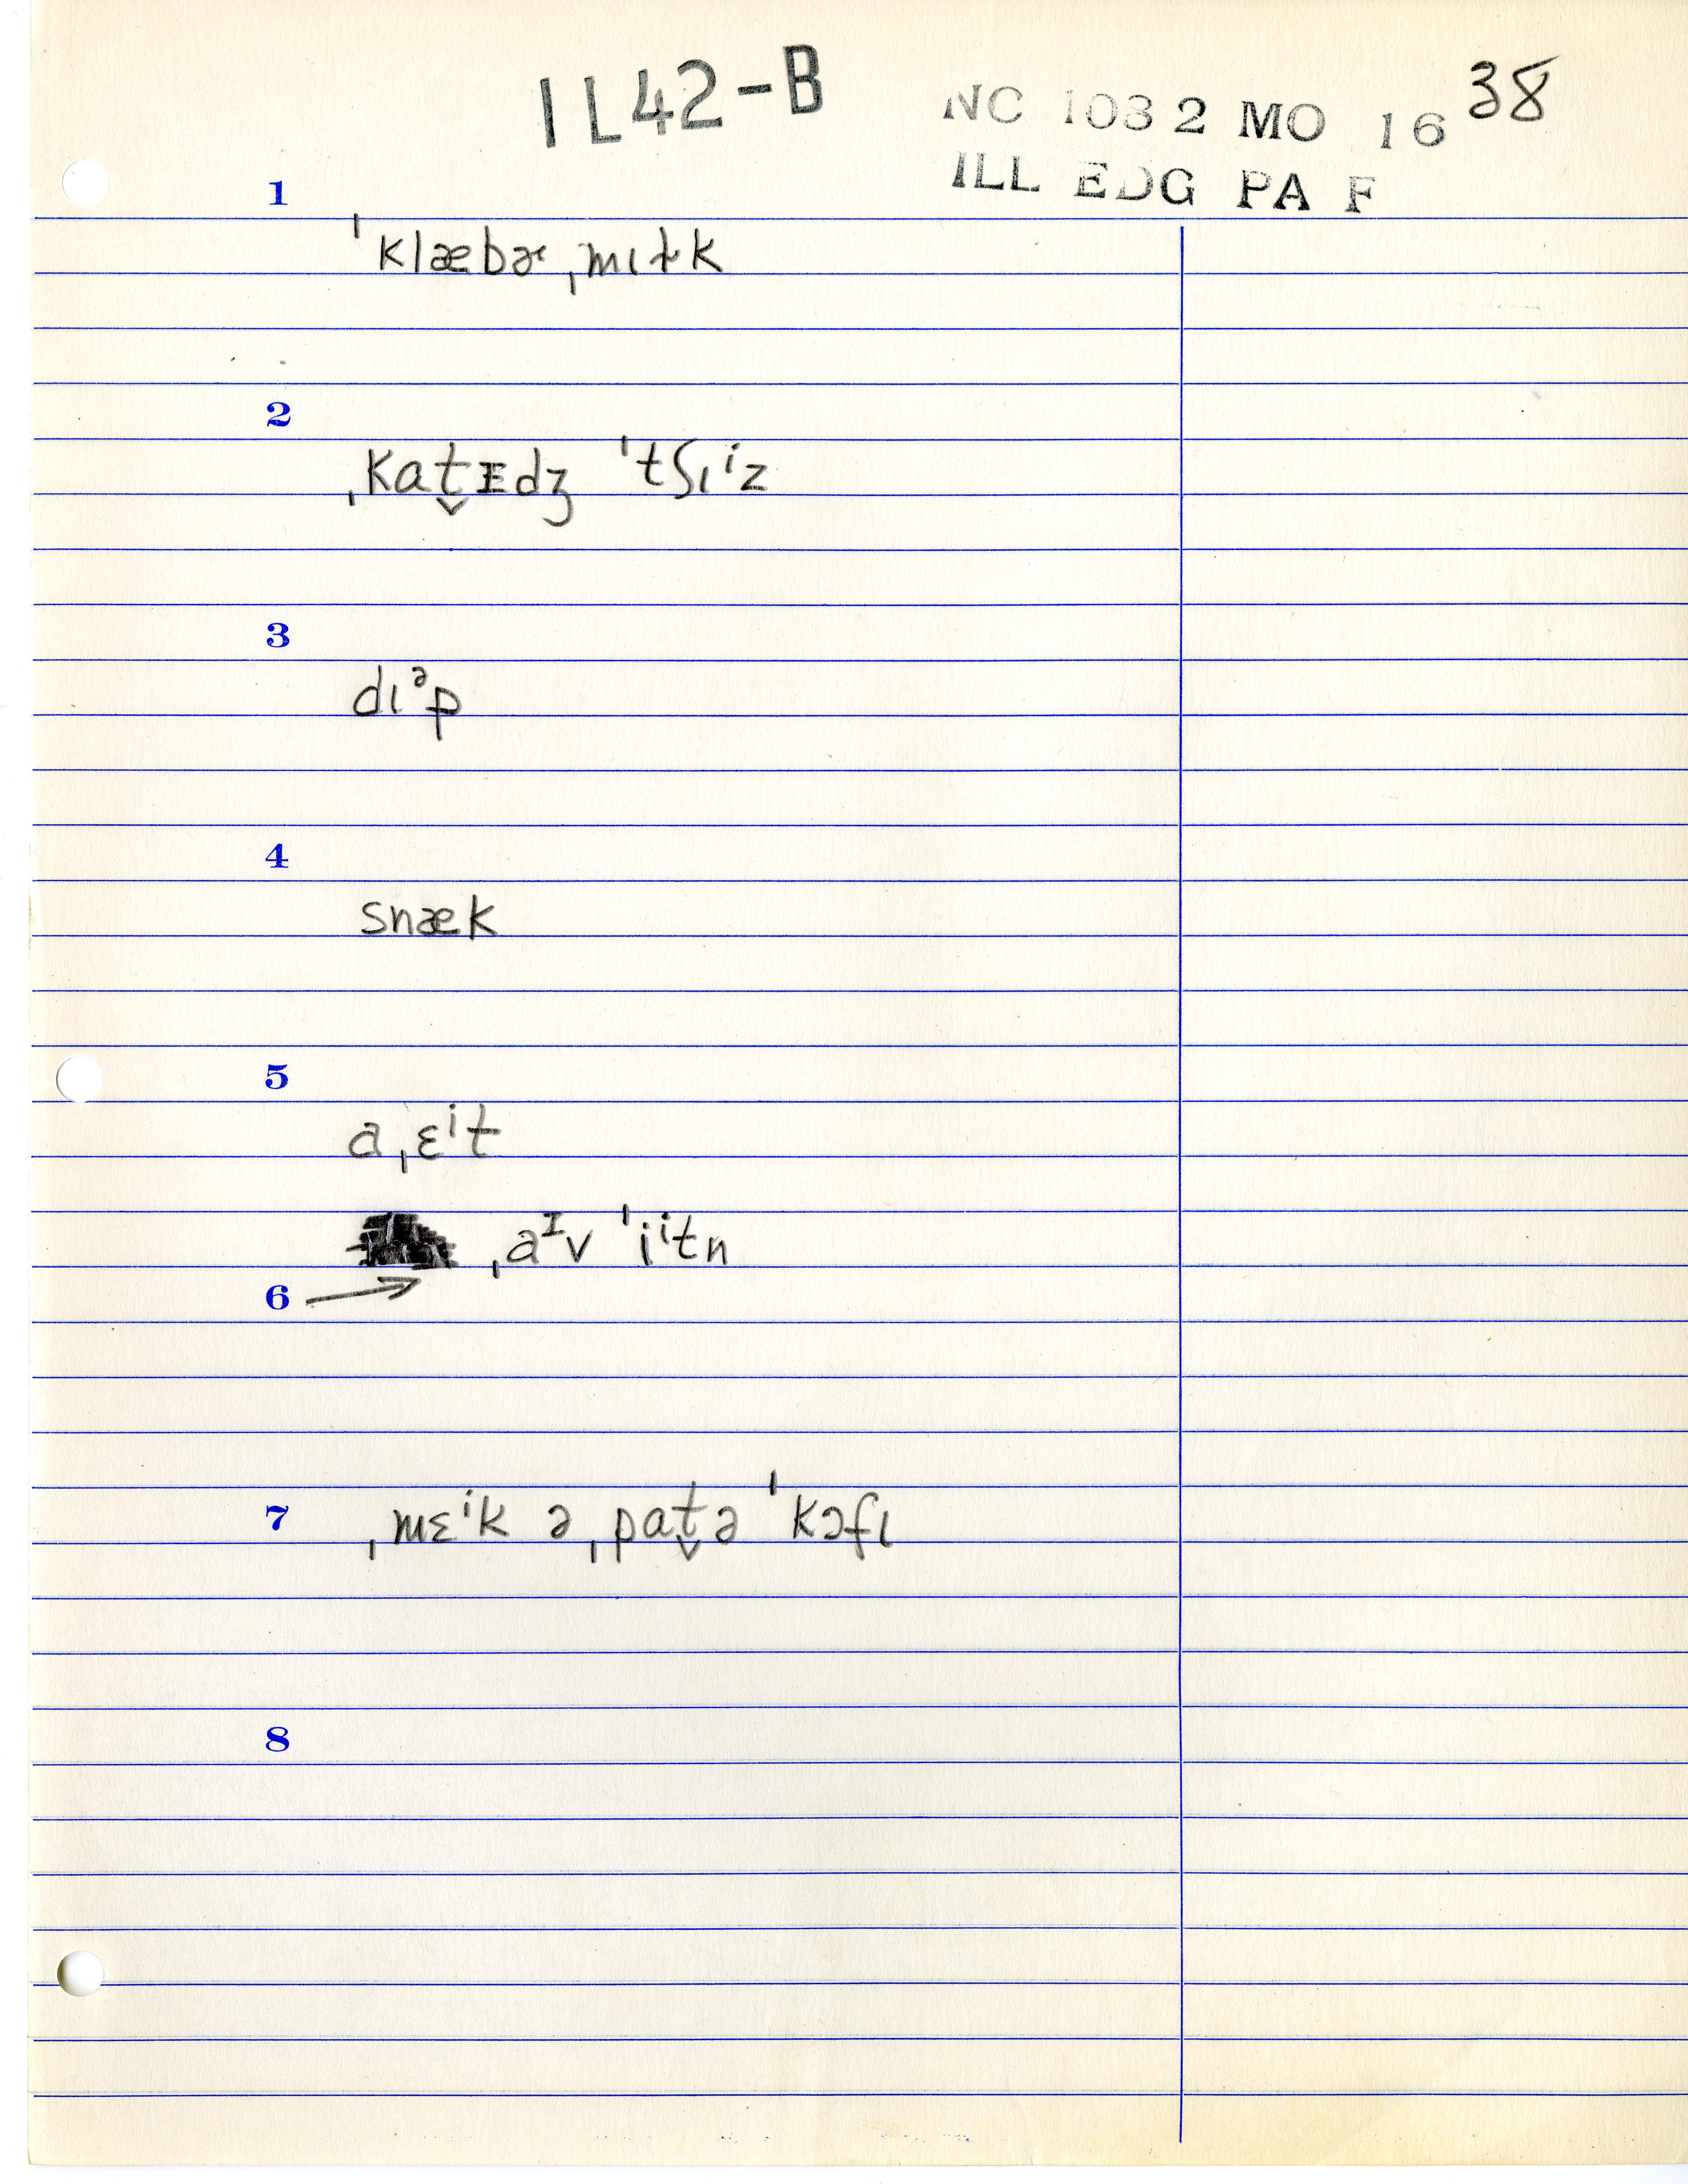 IL42-B
NC 1032 MO 16 38
ILL EDG PA F
1
ˈklæbɚ ˌmɪɫk
2
ˌkat̬ɪdʒ ˈtʃɪⁱz
3
dɪᵊp
4
snæk
5
aˌɛⁱt
ˌaᶦv ˈiⁱtn
6 →
7 ˌmɛⁱk əˌpat̬ə ˈkɔfɪ
8